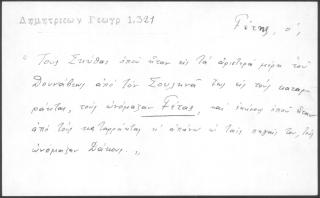 Δημητριεων Γεωγρ 1,321
Γέτης, ὁ,
"Τοὺς Σκύθας ὁποῦ ἦταν εἰς τὰ ἀριστερὰ μέρη τοῦ
Δουνάβεως ἀπὸ τὸν Σουλινᾶ ἕως εἰς τοὺς καταρ-
ράκτας, τοὺς ὠνόμαζαν Γέτας, καὶ ἐκείνους ὁποῦ ἦταν
ἀπὸ τοὺς καταρράκτας κ' ἀπάνω ὡς ταῖς πηγαῖς του, τοὺς
ὠνόμαζαν Δάκους."